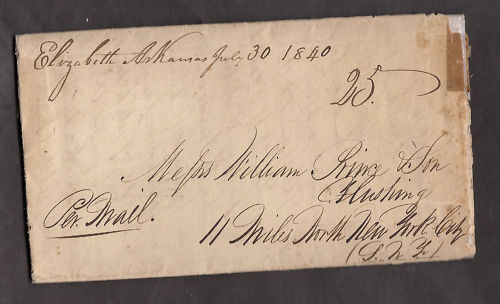 Elizabeth Arkansas July 30 1840
25.
Messrs William Prince & Son
Flushing
Per. Mail.
11 Miles North New York City
(L. N. Y.)